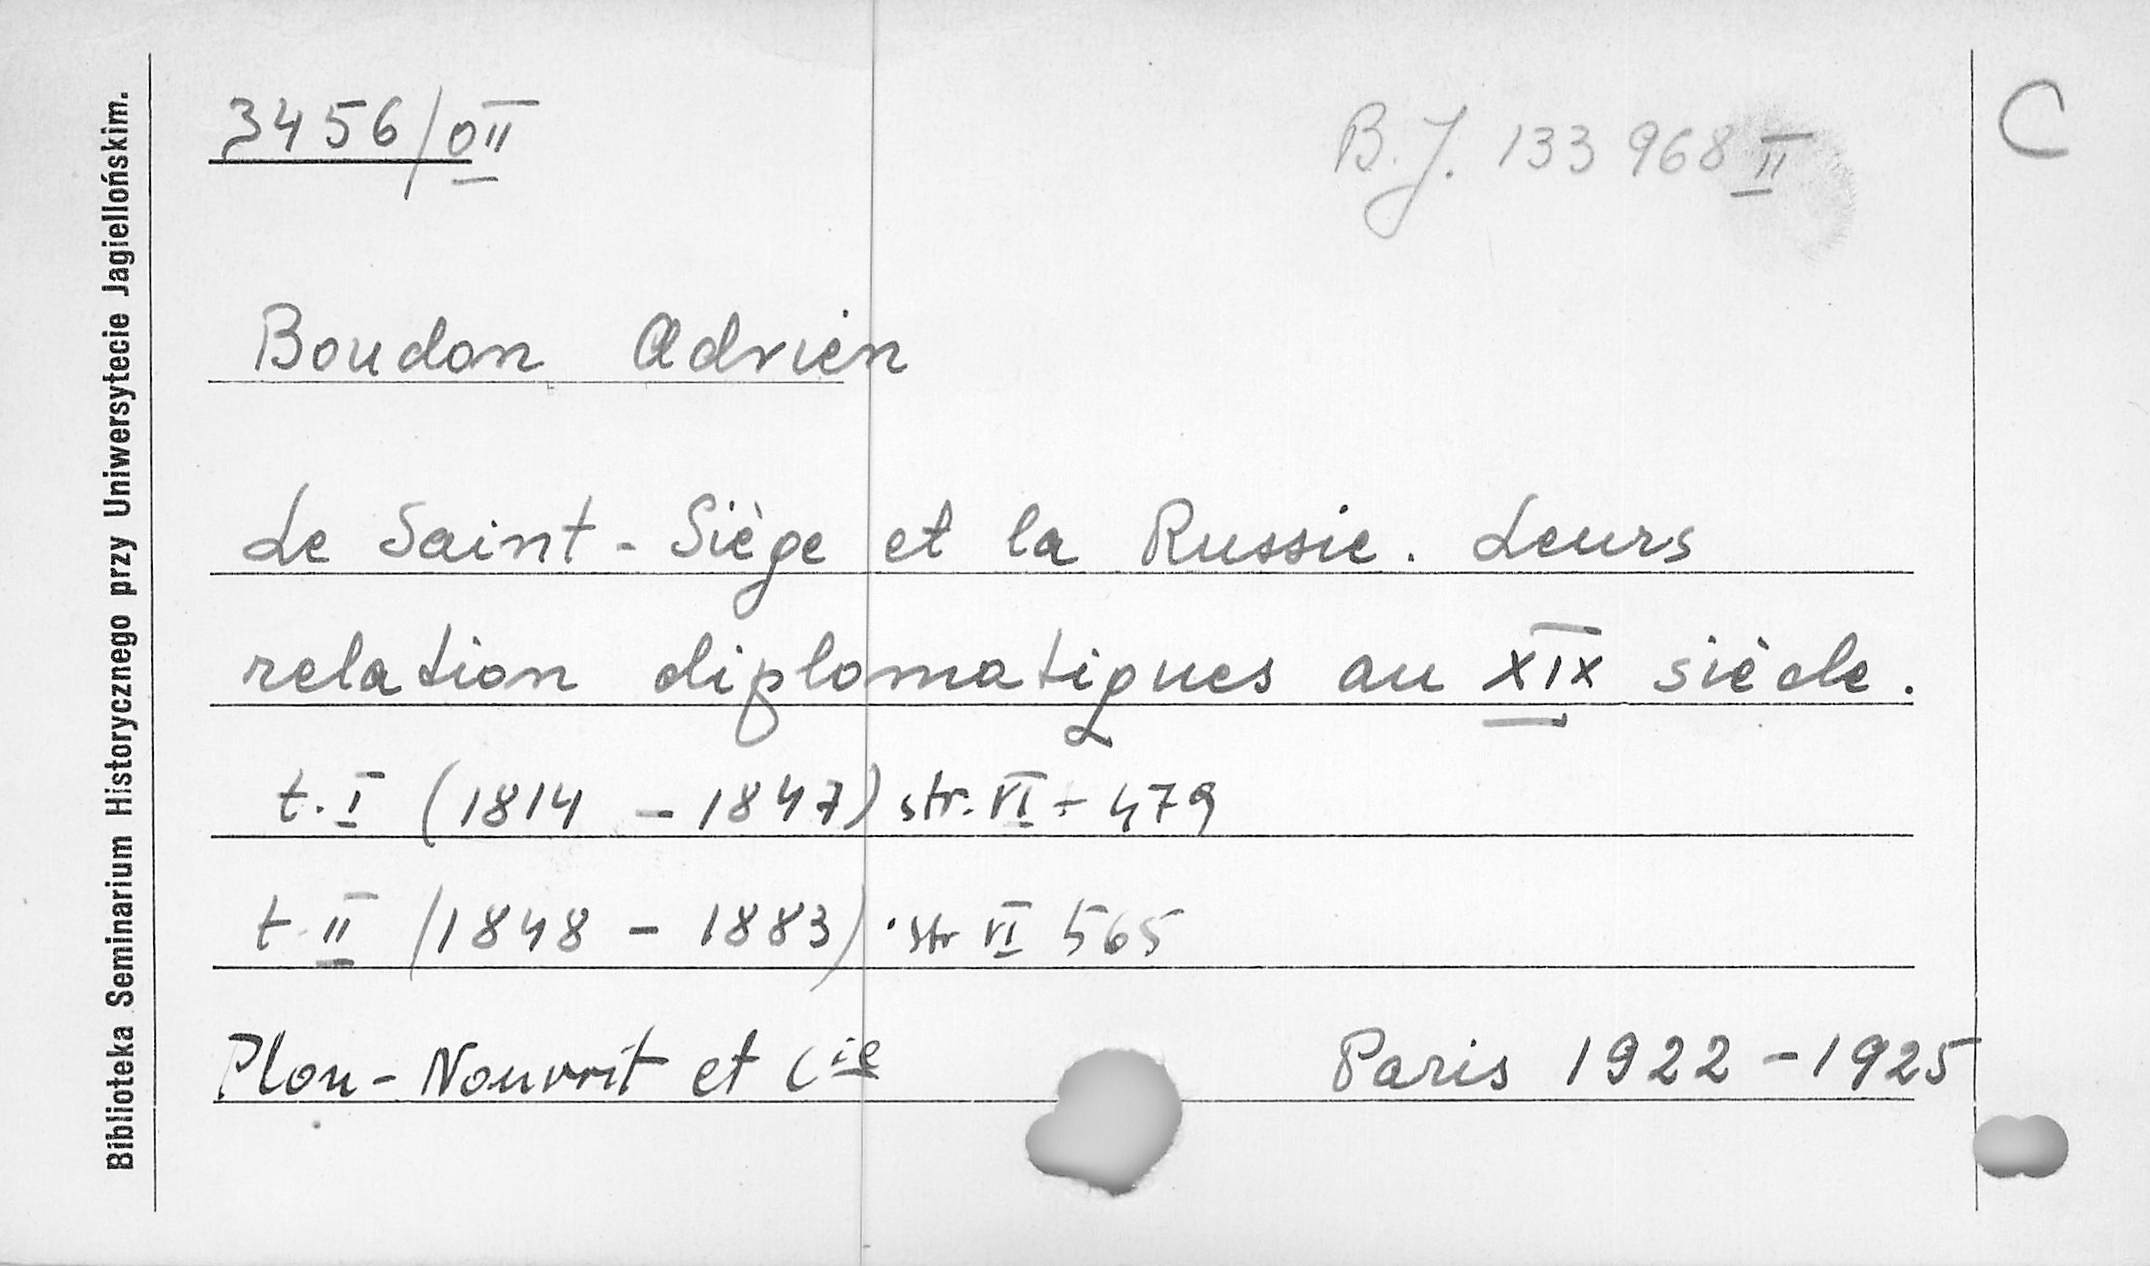 3456/0II
B.J. 133 968 II
C
Boudon Adrien
Le Saint-Siège et la Russie. Leurs
relation diplomatiques au XIX siècle.
t. I (1814 - 1847) str. VI + 479
t. II (1848 - 1883) str VI 565
Plon-Nourrit et Cie Paris 1922-1925
Biblioteka Seminarium Historycznego przy Uniwersytecie Jagiellońskim.